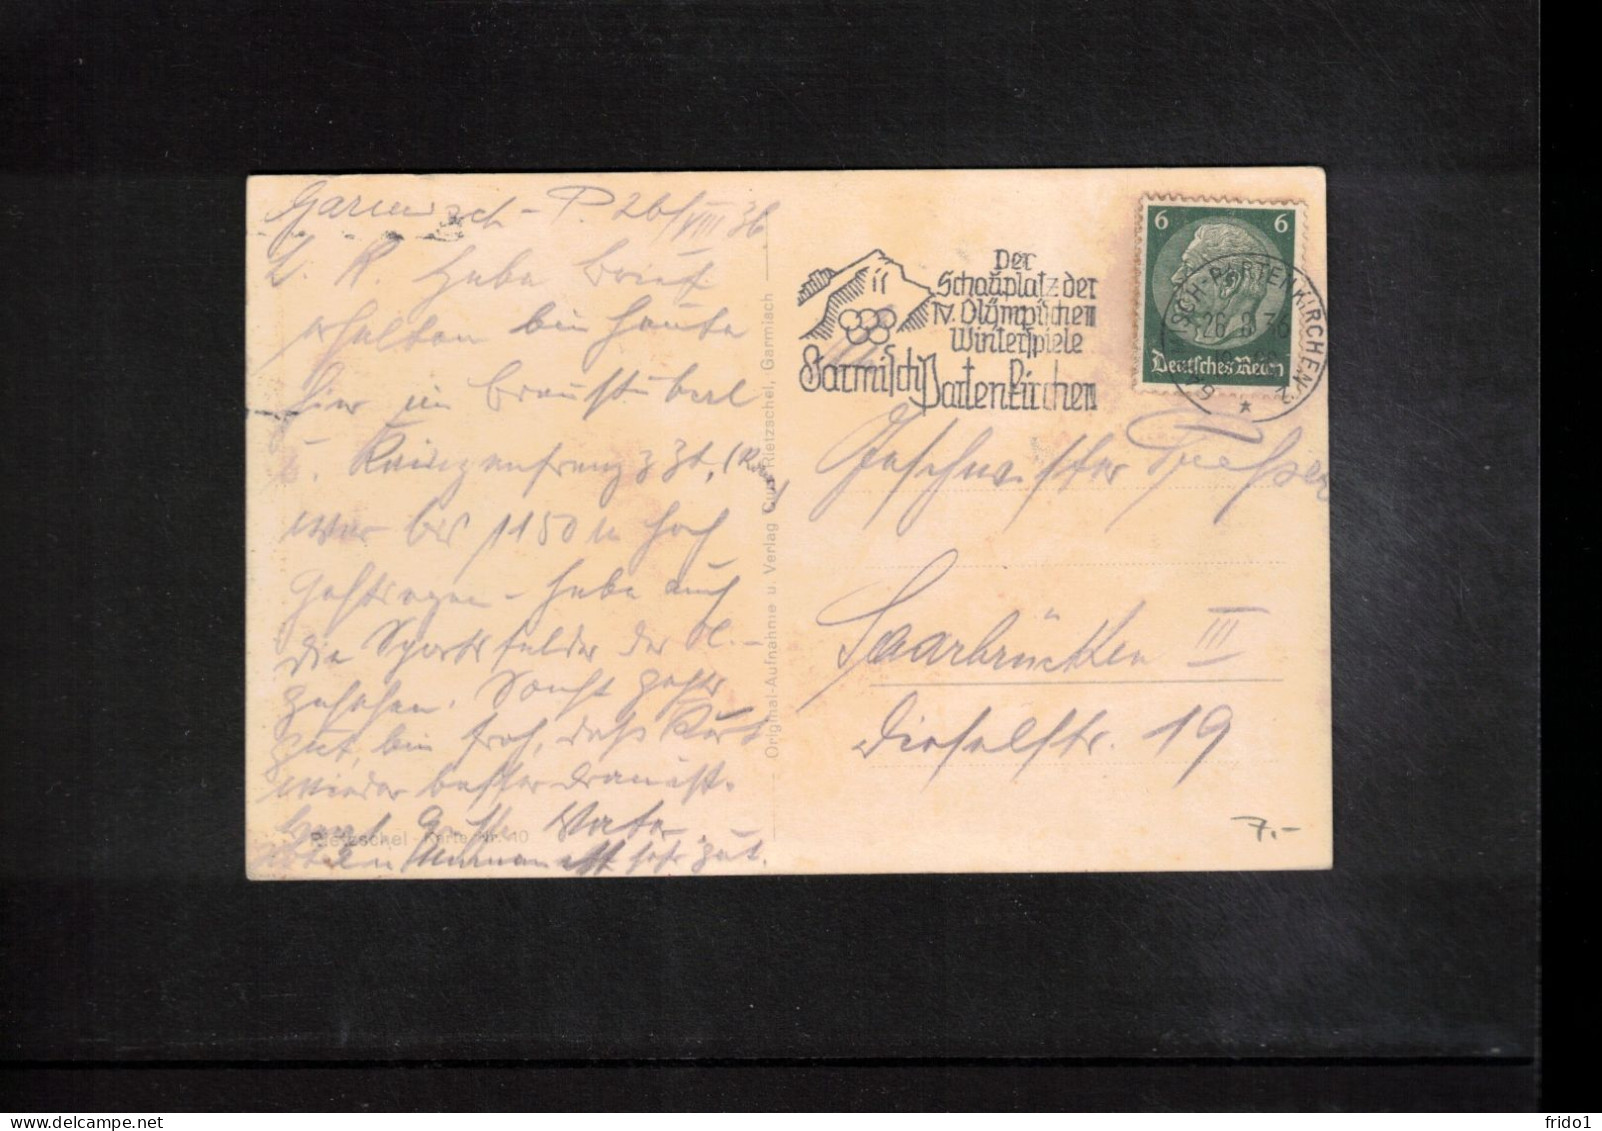 Garmisch - P. 26/VIII 36
L. K. Habe Brief
erhalten bin heute
hier im Bräustüberl
war bis 1150 m hoch
gestiegen - habe auch
die Sportsfelder der Ol. -
gesehen. Sonst geht's
gut, bin froh, daß Kurt
wieder besser dran ist.
Grüße Vater
sehr gut.
Rietzschel - Karte Nr. 10
Original-Aufnahme u. Verlag Curt Rietzschel, Garmisch
Der
Schauplatz der
IV. Olympischen
Winterspiele
Garmisch Partenkirchen
6 6
Deutsches Reich
SCH-PARTENKIRCHEN
26 8 36
Geschwister
Saarbrücken III
Dieselstr. 19
7.-
frido1